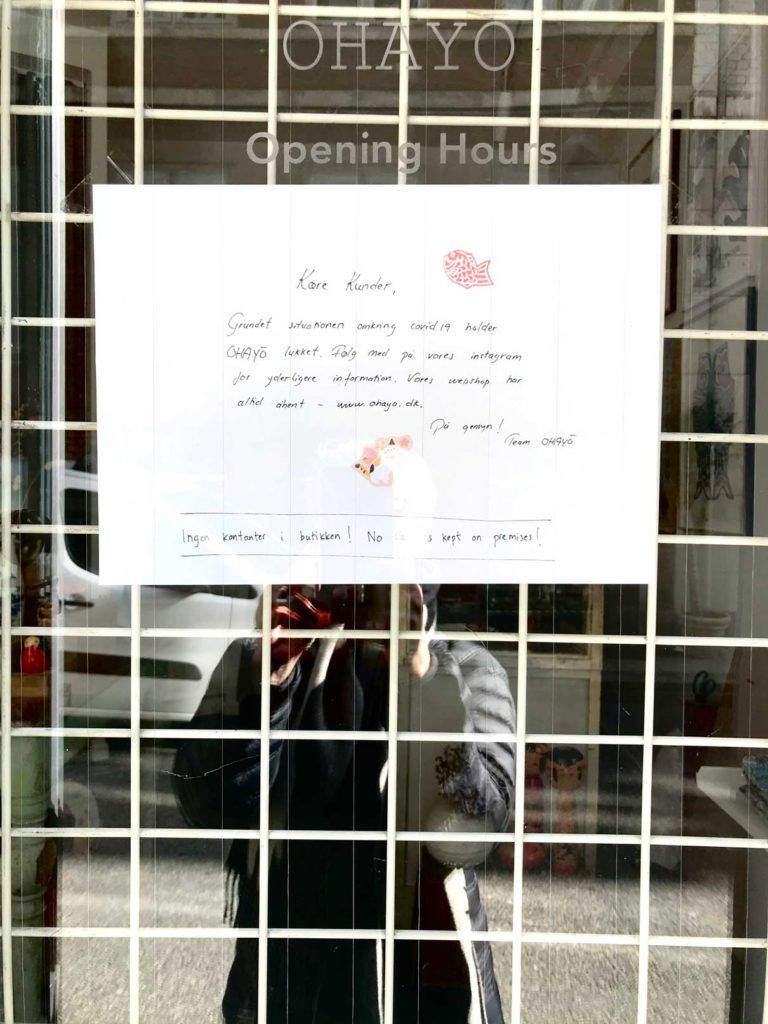 OHAYO
Opening Hours
Kære Kunder,
Grundet situationen omkring covid19 holder
OHAYŌ lukket. Følg med på vores instagram
for yderligere information. Vores webshop har
altid åbent - www.ohayo.dk.
På gensyn!
Team OHAYŌ
Ingen kontanter i butikken! No kept on premises!